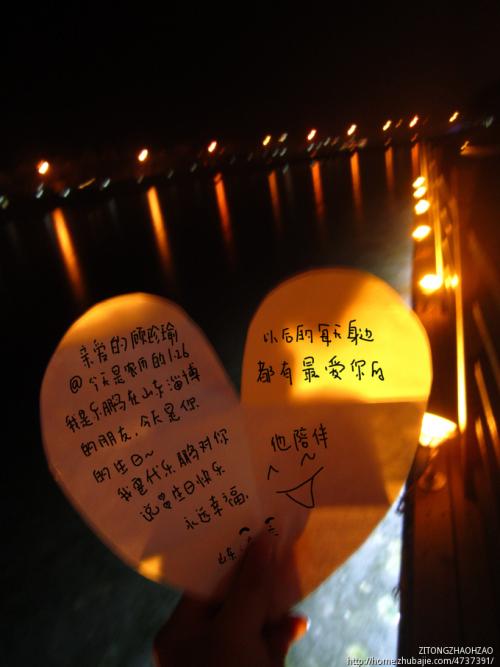 亲爱的顾珍瑜
@ 今天是你的1.26
我是乐鹏在山东淄博
的朋友.今天是你
的生日~
我要代乐鹏对你
说生日快乐
永远幸福.
以后的每天身边
都有最爱你的
他陪伴
ZITONGZHAOHZAO
http://homezhubajie.com/4737391/